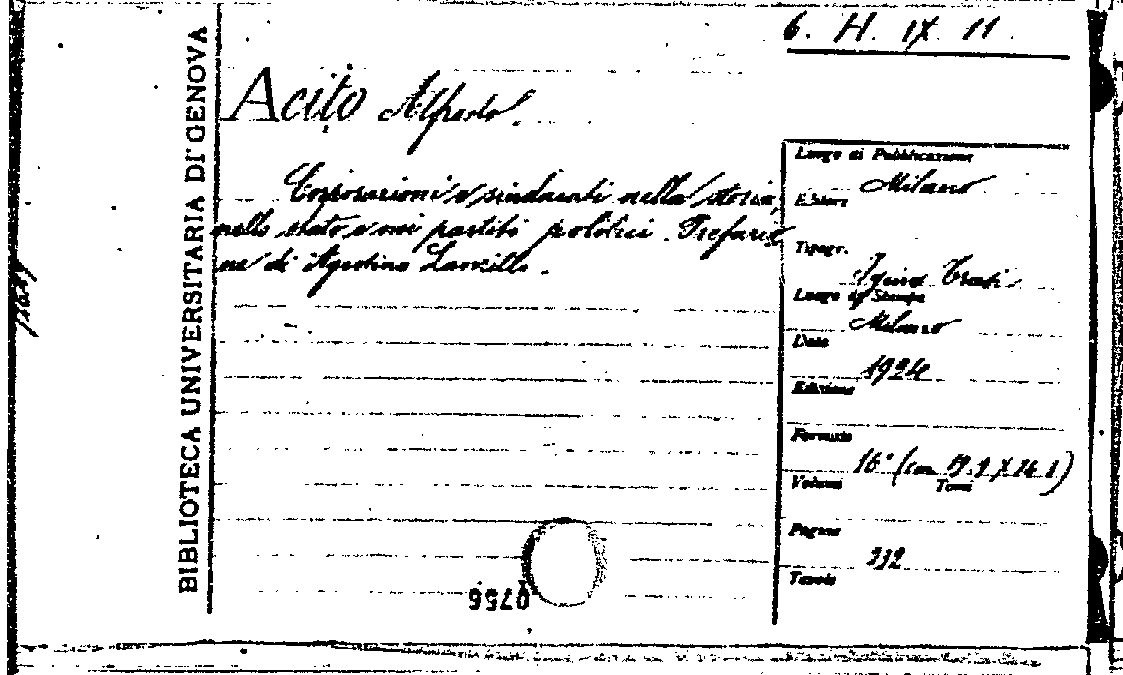 6. H. IX. 11.
BIBLIOTECA UNIVERSITARIA DI GENOVA
Acito Alfredo.
Corporazioni e sindacati nella storia,
nello stato e nei partiti politici. Prefazio
ne di Agostino Lanzillo.
Luogo di Pubblicazione
Milano
Editore
Tipogr.
Luogo di Stampa
Milano
Data
1924
Edizione
Formato
16° (cm
Volumi
Tomi
Pagine
232
Tavole
0756